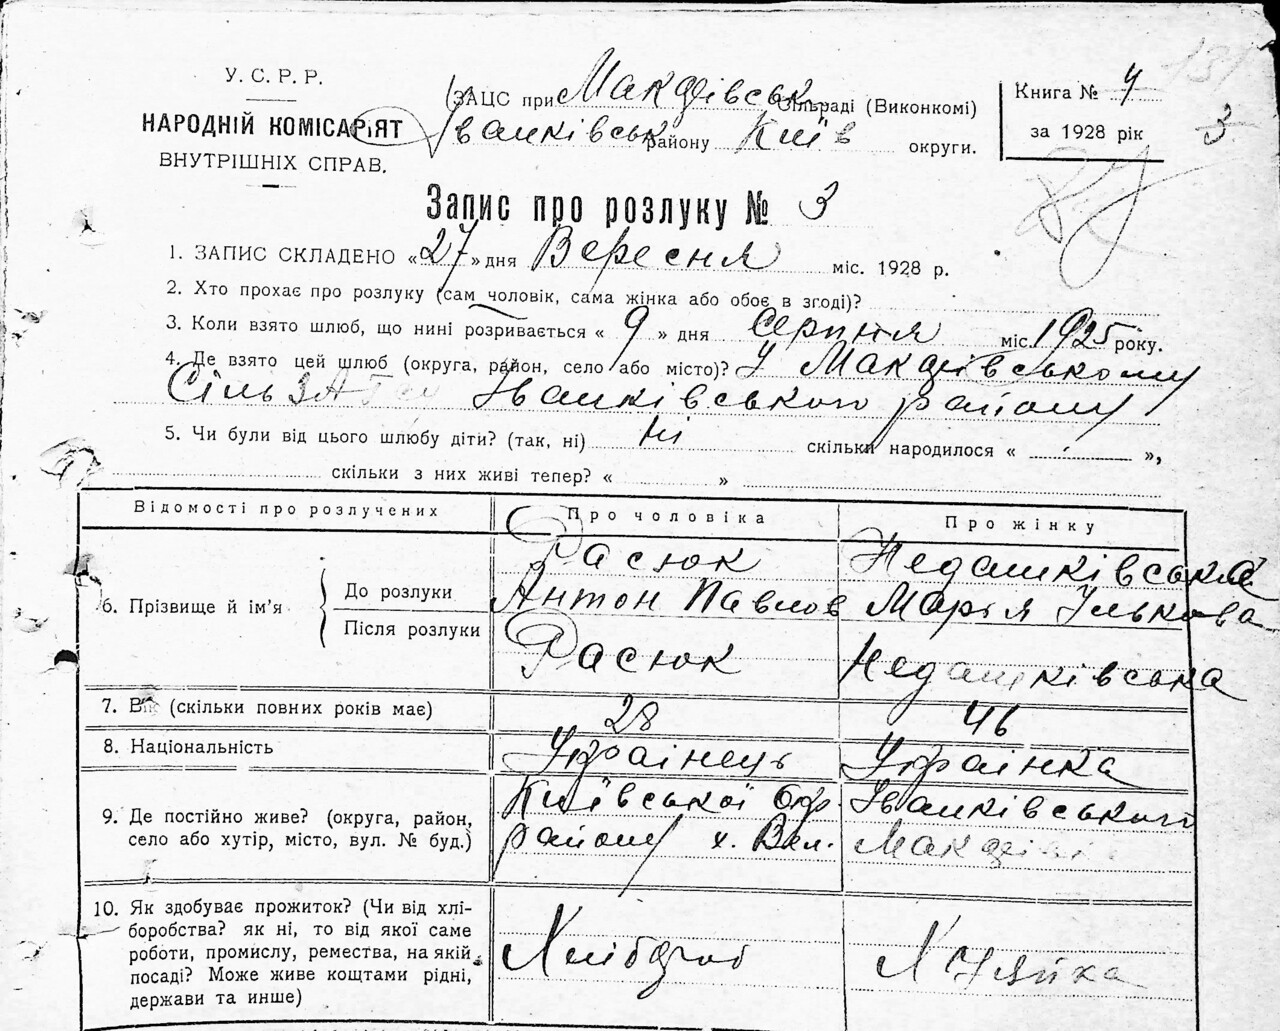 У. С. Р. Р.
НАРОДНІЙ КОМІСАРІЯТ
ВНУТРІШНІХ СПРАВ.
ЗАЦС при Макаїівськ. Сільраді (Виконкомі)
Іванківськ району Київ округи.
Книга № 4
за 1928 рік
3
Запис про розлуку № 3
1. ЗАПИС СКЛАДЕНО «27» дня Вересня міс. 1928 р.
2. Хто прохає про розлуку (сам чоловік, сама жінка або обоє в згоді)?
3. Коли взято шлюб, що нині розривається « 9 » дня Серпня міс. 1925 року.
4. Де взято цей шлюб (округа, район, село або місто)? У
Іванківського району
5. Чи були від цього шлюбу діти? (так, ні) ні скільки народилося « - »,
скільки з них живі тепер? « »
Відомості про розлучених Про чоловіка Про жінку
6. Прізвище й ім'я
До розлуки Расюк Недашківська
Антон Павлов Марья Ількова
Після розлуки Расюк Недашківська
7. Вік (скільки повних років має) 28 46
8. Національність Українець Українка
9. Де постійно живе? (округа, район, село або хутір, місто, вул. № буд.) Київської Окр. Іванківського
району х. Вел.
10. Як здобуває прожиток? (Чи від хлі-
боробства? як ні, то від якої саме
роботи, промислу, ремества, на якій
посаді? Може живе коштами рідні,
держави та инше)
Хлібороб